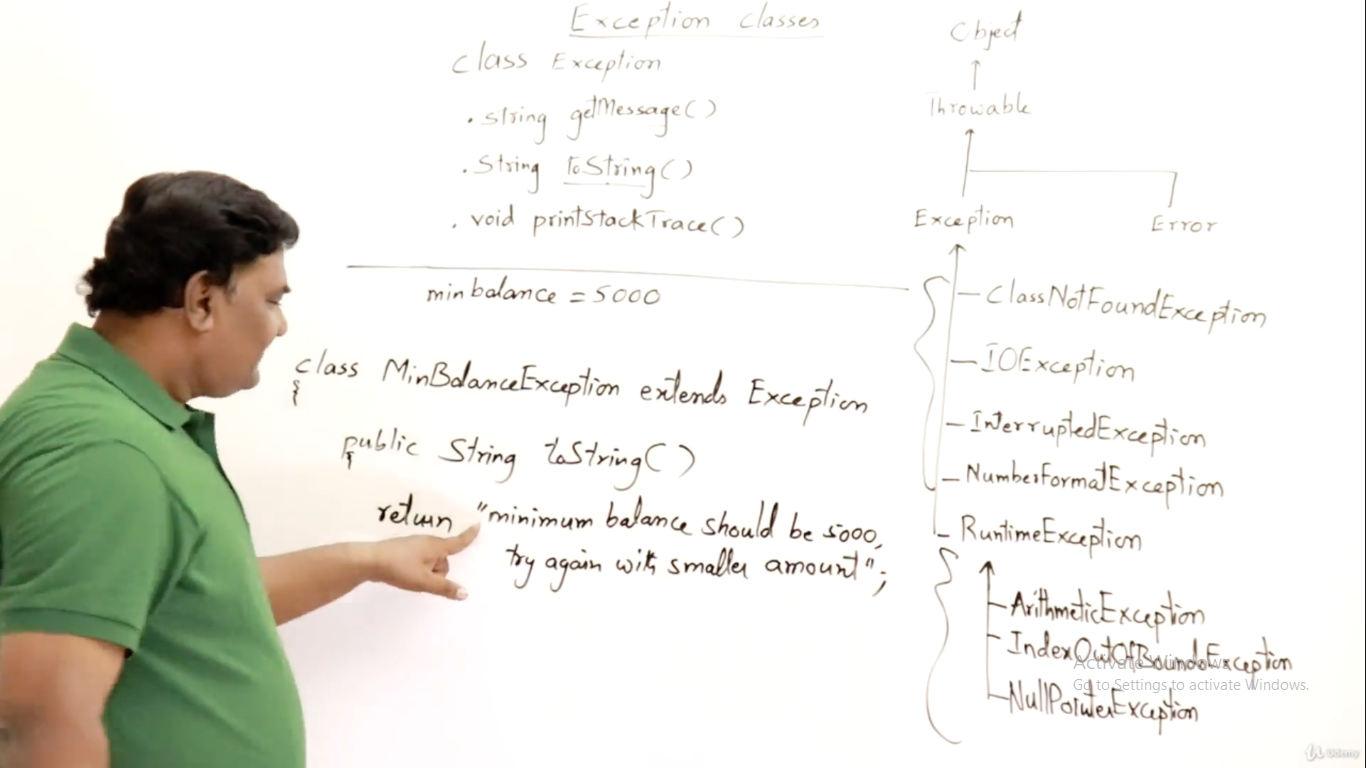 Exception classes
class Exception
. string getMessage()
. String toString()
. void printStackTrace()
minbalance = 5000
class MinBalanceException extends Exception
{
public String toString()
{
return "minimum balance should be 5000,
try again with smaller amount";
Object
Throwable
Exception
Error
ClassNotFoundException
IOException
InterruptedException
NumberFormatException
RuntimeException
ArithmeticException
IndexOutOfBoundsException
NullPointerException
Activate Windows
Go to Settings to activate Windows.
Udemy